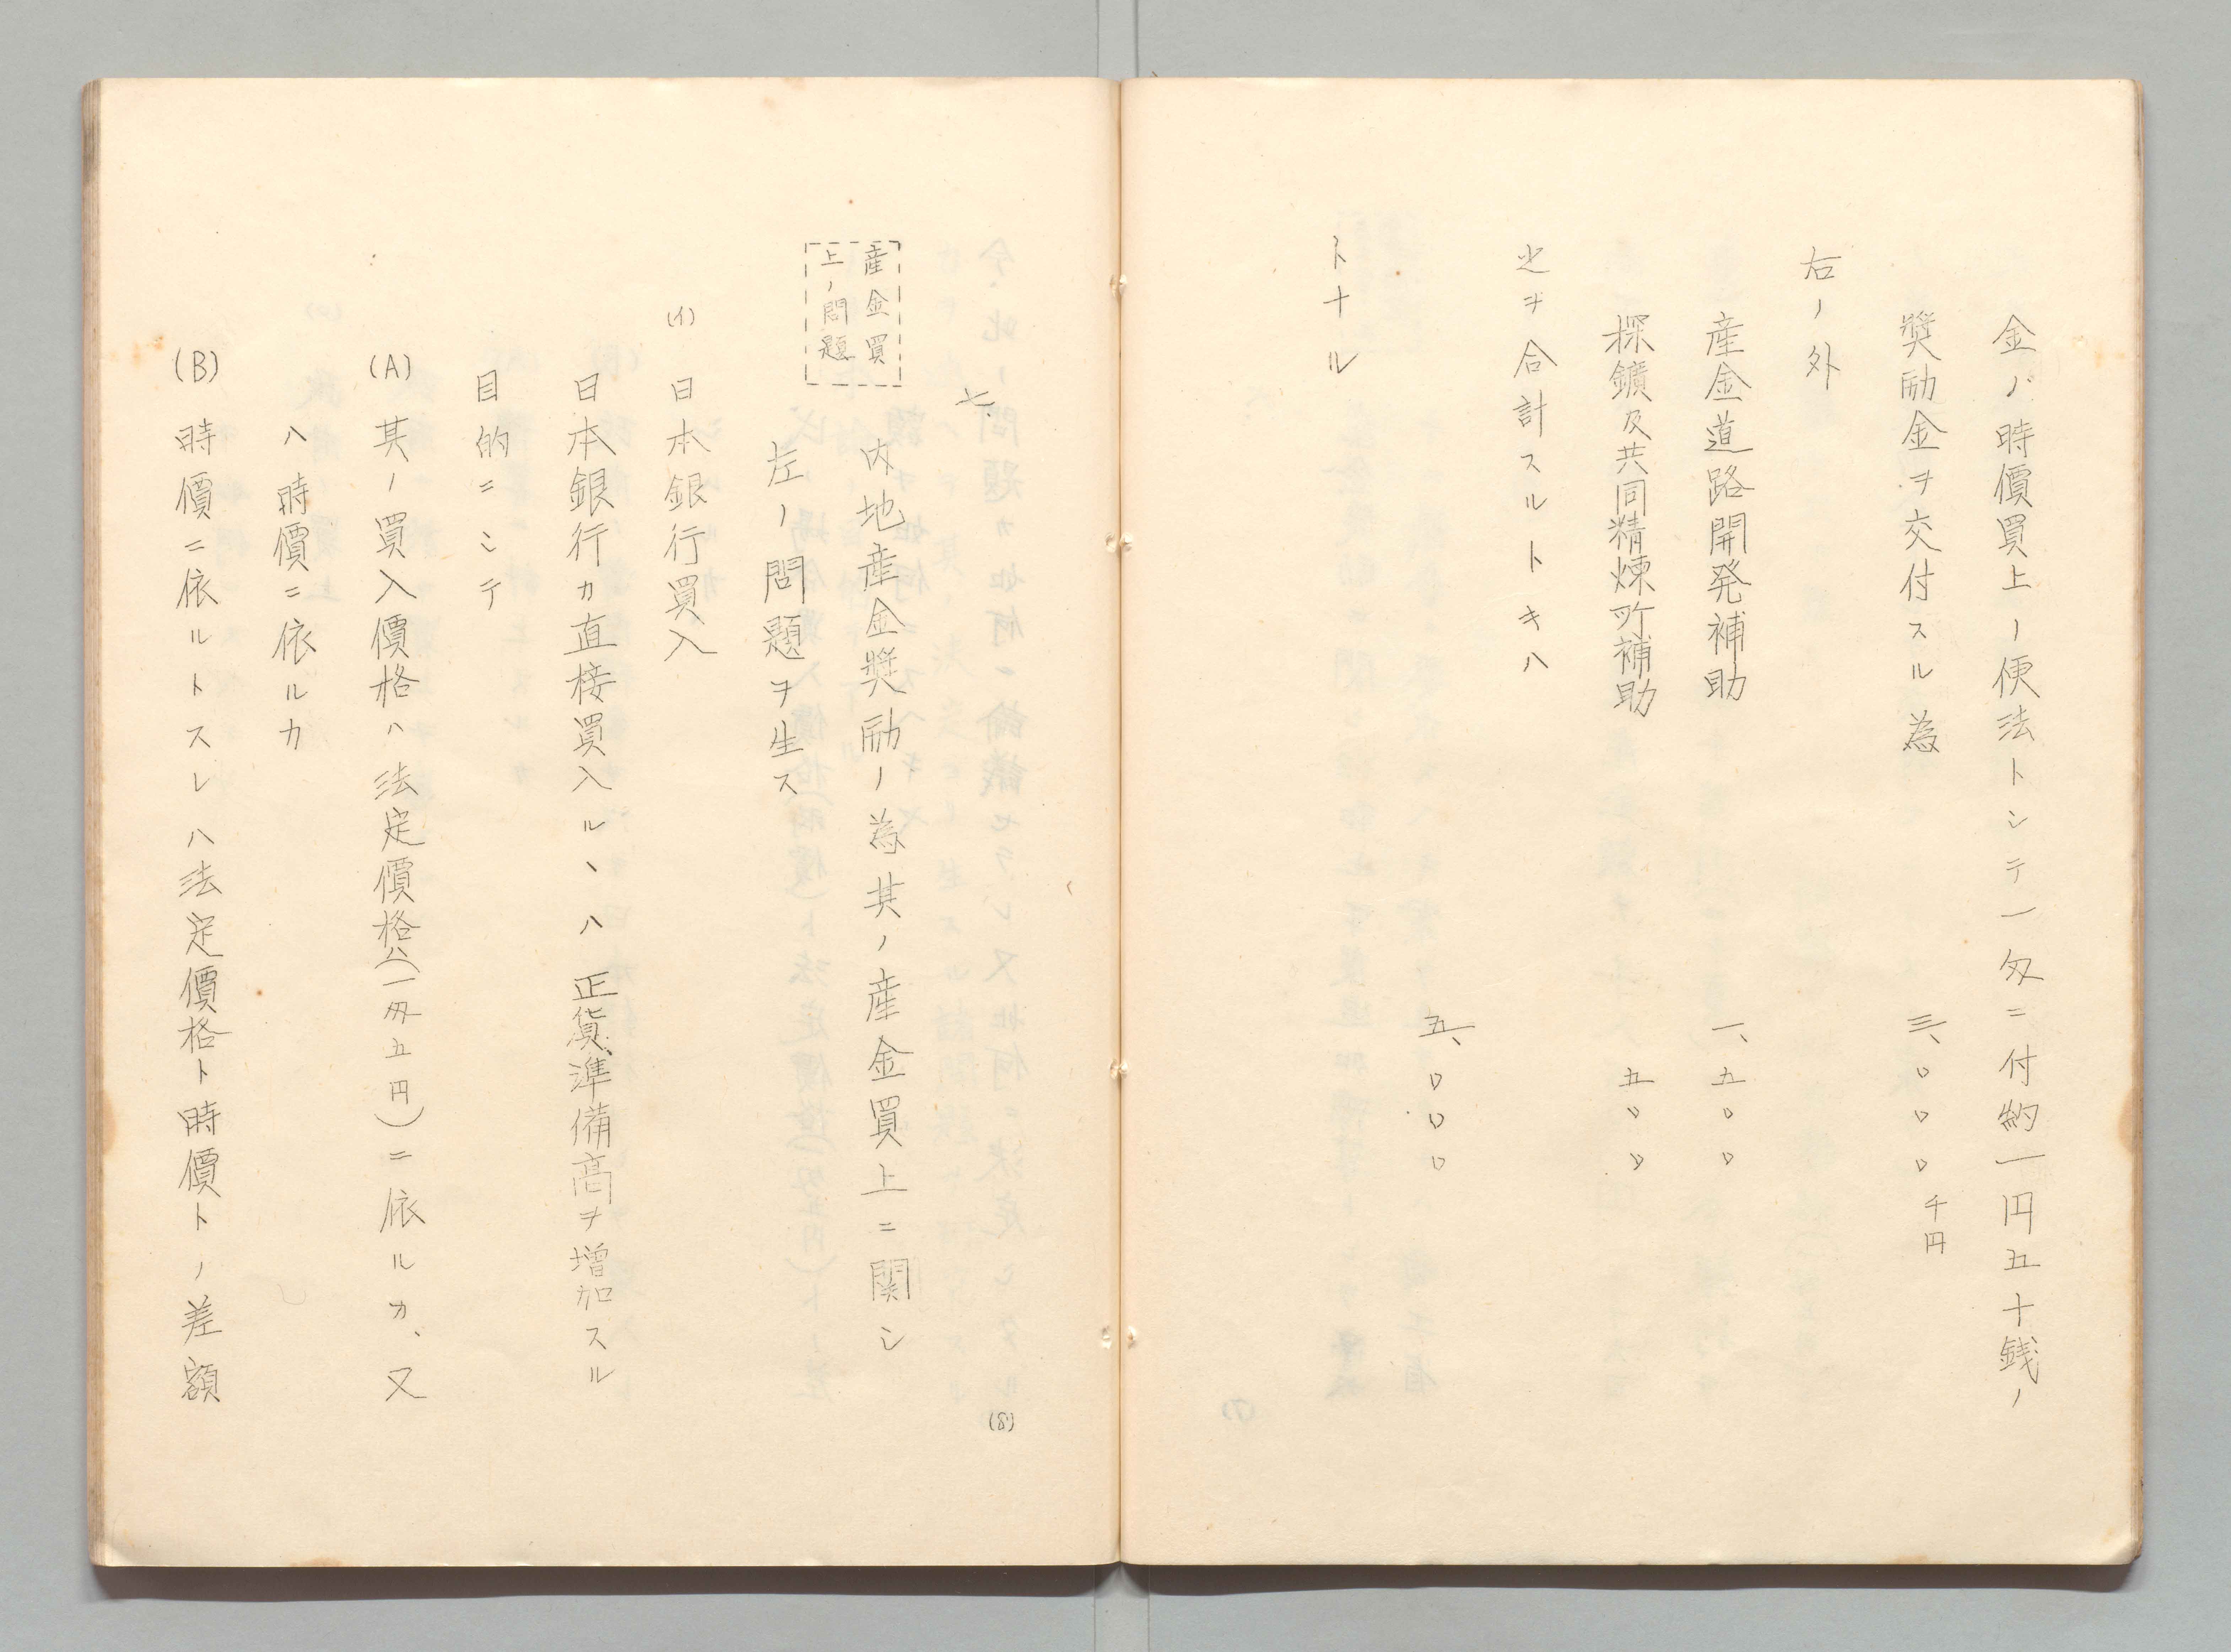 金ノ時價買上ノ便法トシテ一匁ニ付約一円五十銭ノ
奬励金ヲ交付スル為　三、〇〇〇千円
右ノ外
産金道路開発補助　一、五〇〇
探鑛及共同精煉所補助　五〇〇
之ヲ合計スルトキハ
五、〇〇〇
トナル
七、
産金買
上ノ問題
内地産金奬励ノ為其ノ産金買上ニ関シ
左ノ問題ヲ生ス
(イ)　日本銀行買入
日本銀行カ直接買入ルヽハ正貨準備高ヲ増加スル
目的ニシテ
(A)　其ノ買入價格ハ法定價格(一匁五円)ニ依ルカ、又
ハ時價ニ依ルカ
(B)　時價ニ依ルトスレハ法定價格ト時價トノ差額
(8)